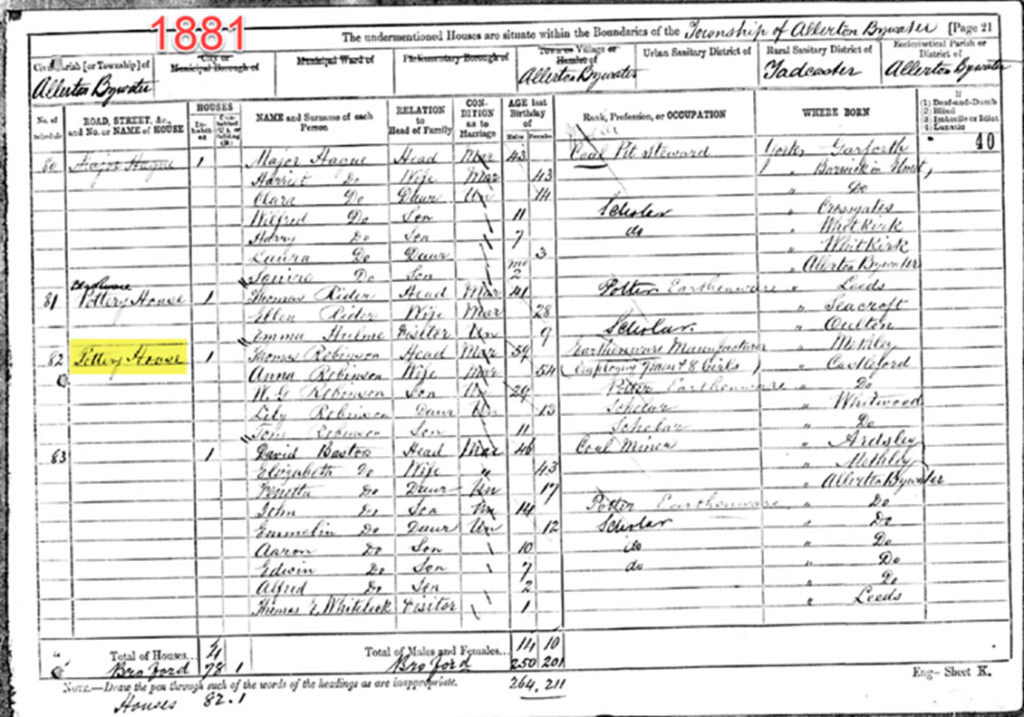 1881
The undermentioned Houses are situate within the Boundaries of the Township of Allerton Bywater [Page 21
Civil Parish [or Township] of
City or Municipal Borough of
Municipal Ward of
Parliamentary Borough of
Town or Village or Hamlet of
Urban Sanitary District of
Rural Sanitary District of
Ecclesiastical Parish or District of
Allerton Bywater Allerton Bywater Tadcaster Allerton Bywater
No. of Schedule
ROAD, STREET, &c., and No. or NAME of HOUSE
HOUSES
NAME and Surname of each Person
RELATION to Head of Family
CONDITION as to Marriage
AGE last Birthday of
Males Females
Rank, Profession, or OCCUPATION
WHERE BORN
If
(1) Deaf-and-Dumb
(2) Blind
(3) Imbecile or Idiot
(4) Lunatic
40
80 Major Hague 1 Major Hague Head Mar 43 Coal Pit Steward Yorks Garforth
Harriet Do Wife Mar 43 " Barwick in Elmet
Clara Do Daur Un 14 " Do
Wilfred Do Son 11 Scholar " Crossgates
Harry Do Son 7 do " Whitkirk
Laura Do Daur 3 " Whitkirk
Squire Do Son mo 2 " Allerton Bywater
81 Pottery House 1 Thomas Rider Head Mar 41 Potter Earthenware " Leeds
Ellen Rider Wife Mar 28 " Seacroft
Emma Hulme Visitor Un 9 Scholar " Oulton
82 Pottery House 1 Thomas Robinson Head Mar 59 Earthenware Manufacturer "
Anna Robinson Wife Mar 54 (Employing 7 men & 8 Girls) " Castleford
Robinson Son Un 29 Potter Earthenware " Do
Lily Robinson Daur Un 13 Scholar " Whitwood
Tom Robinson Son 11 Scholar " Do
83 1 David Bastow Head Mar 46 Coal Miner " Ardsley
Elizabeth Do Wife " 43 " Methley
Do Daur Un 17 " Allerton Bywater
John Do Son Un 14 Potter Earthenware " Do
Emmelin Do Daur Un 12 Scholar " Do
Aaron Do Son 10 do " Do
Edwin Do Son 7 do " Do
Alfred Do Son 2 " Do
Thomas Whitelock Visitor 1 " Leeds
Total of Houses... 4 Total of Males and Females... 14 10
Bro Ford 78 1 Bro Ford 250 201
264 . 211
NOTE.—Draw the pen through such of the words of the headings as are inappropriate.
Eng— Sheet K.
Houses 82.1